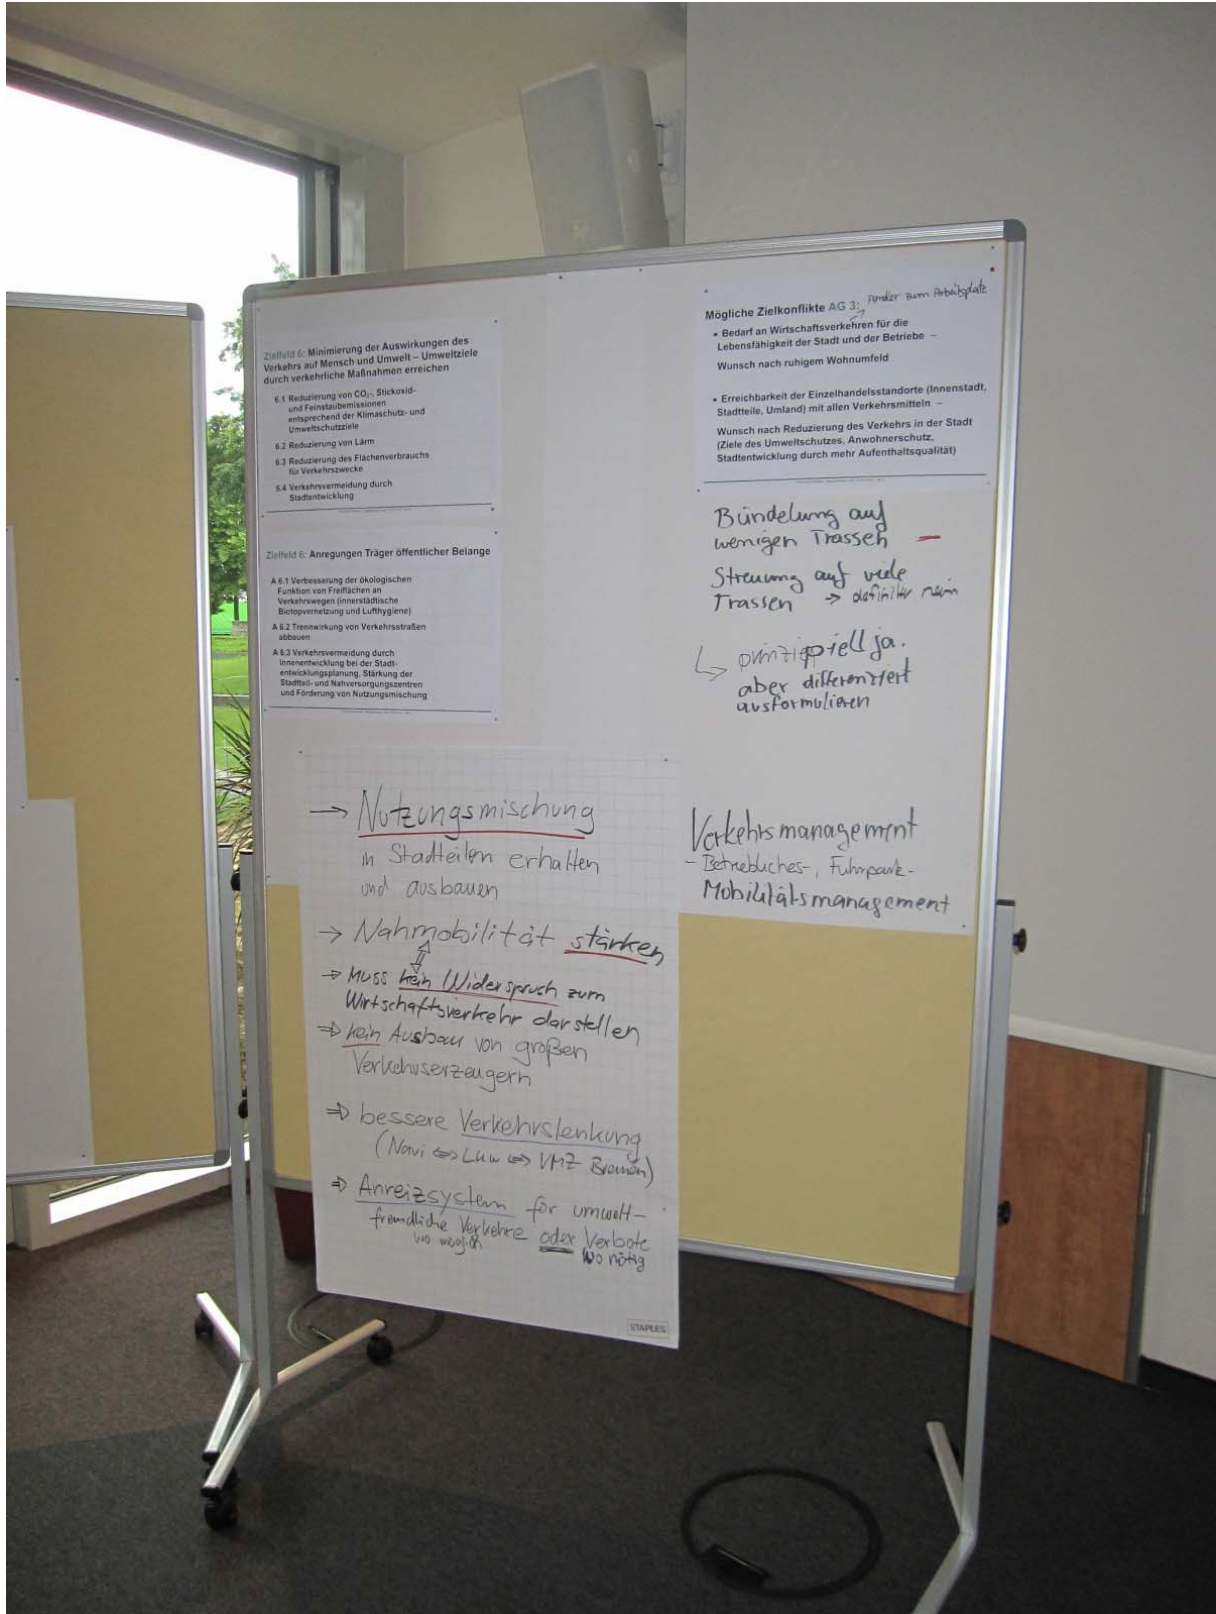 Zielfeld 6: Minimierung der Auswirkungen des
Verkehrs auf Mensch und Umwelt – Umweltziele
durch verkehrliche Maßnahmen erreichen
6.1 Reduzierung von CO₂-, Stickoxid-
und Feinstaubemissionen
entsprechend der Klimaschutz- und
Umweltschutzziele
6.2 Reduzierung von Lärm
6.3 Reduzierung des Flächenverbrauchs
für Verkehrszwecke
6.4 Verkehrsvermeidung durch
Stadtentwicklung
Zielfeld 6: Anregungen Träger öffentlicher Belange
A 6.1 Verbesserung der ökologischen
Funktion von Freiflächen an
Verkehrswegen (innerstädtische
Biotopvernetzung und Lufthygiene)
A 6.2 Trennwirkung von Verkehrsstraßen
abbauen
A 6.3 Verkehrsvermeidung durch
Innenentwicklung bei der Stadt-
entwicklungsplanung, Stärkung der
Stadtteil- und Nahversorgungszentren
und Förderung von Nutzungsmischung
→ Nutzungsmischung
in Stadteilen erhalten
und ausbauen
→ Nahmobilität stärken
⇒ Muss kein Widerspruch zum
Wirtschaftsverkehr darstellen
⇒ kein Ausbau von großen
Verkehrserzeugern
⇒ bessere Verkehrslenkung
(Navi ⇔ Lkw ⇔ VMZ Bremen)
⇒ Anreizsystem für umwelt-
freundliche Verkehre oder Verbote
wo möglich wo nötig
STAPLES
Mögliche Zielkonflikte AG 3: Pendler zum Arbeitsplatz
• Bedarf an Wirtschaftsverkehren für die
Lebensfähigkeit der Stadt und der Betriebe –
Wunsch nach ruhigem Wohnumfeld
• Erreichbarkeit der Einzelhandelsstandorte (Innenstadt,
Stadtteile, Umland) mit allen Verkehrsmitteln –
Wunsch nach Reduzierung des Verkehrs in der Stadt
(Ziele des Umweltschutzes, Anwohnerschutz,
Stadtentwicklung durch mehr Aufenthaltsqualität)
Bündelung auf
wenigen Trassen –
Streuung auf viele
Trassen → definitiv nein
↳ prinzipiell ja.
aber differenziert
ausformulieren
Verkehrsmanagement
- Betriebliches-, Fuhrpark-
Mobilitätsmanagement